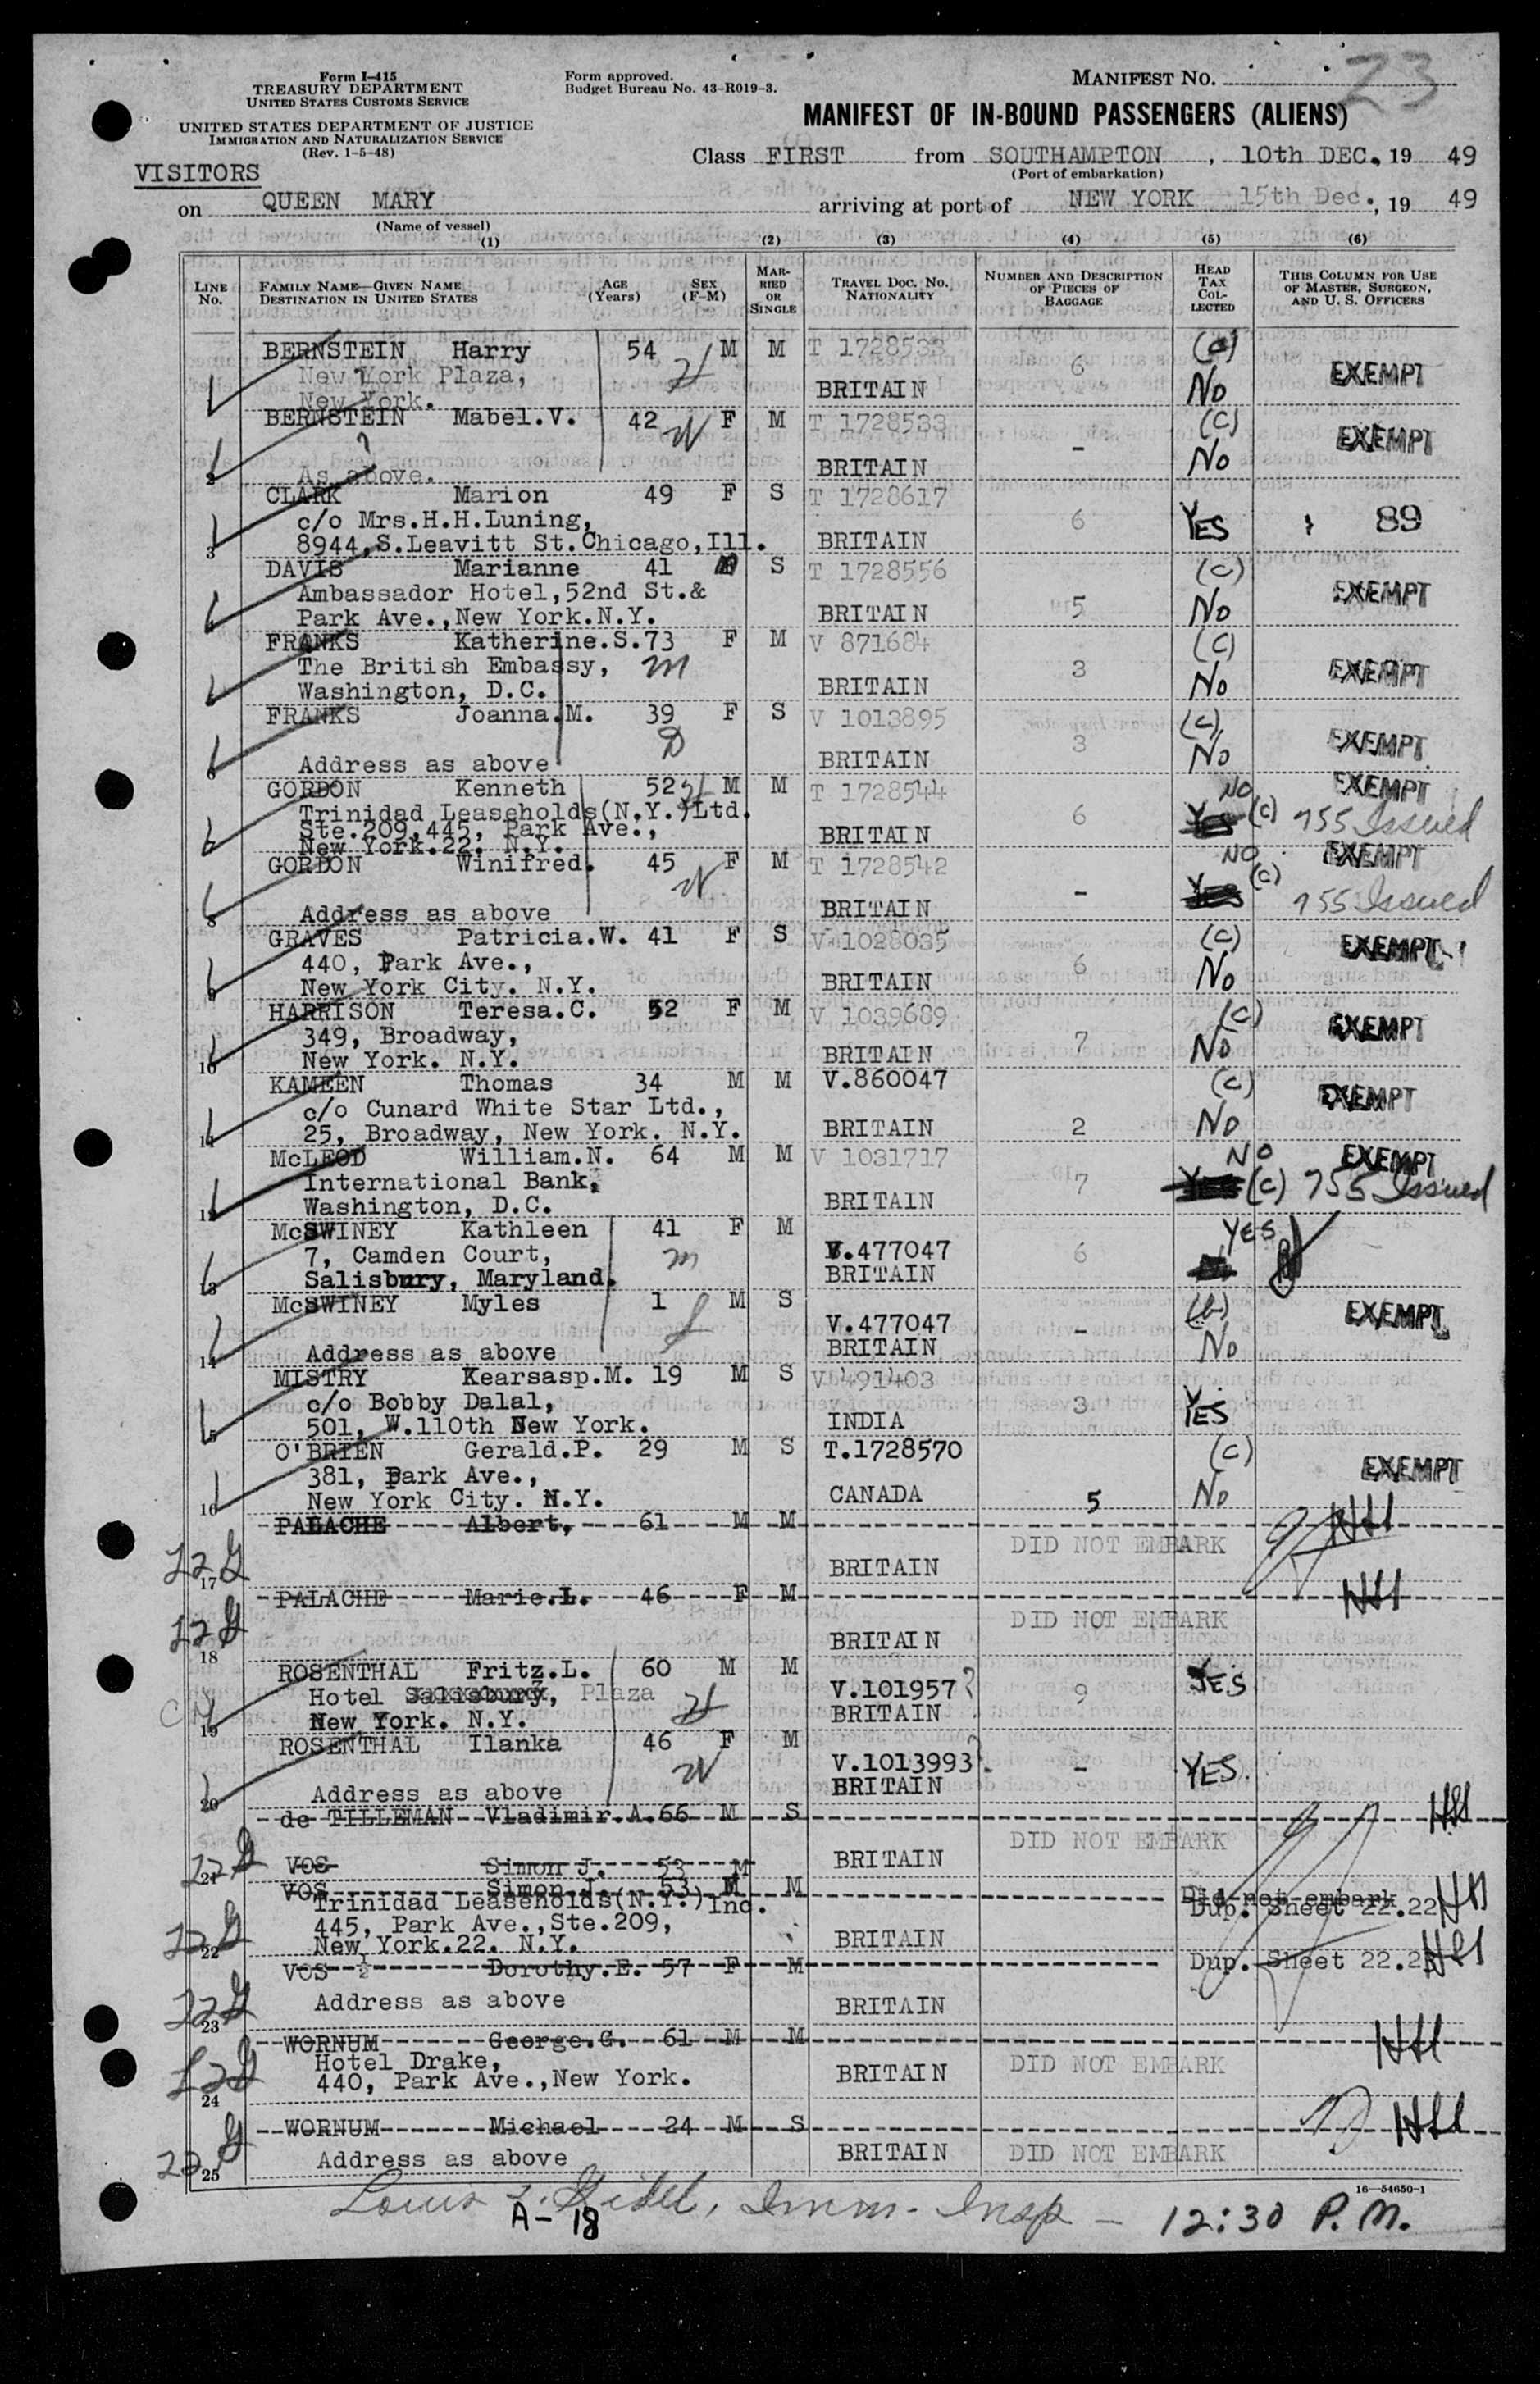 Form I-415
TREASURY DEPARTMENT
UNITED STATES CUSTOMS SERVICE
UNITED STATES DEPARTMENT OF JUSTICE
IMMIGRATION AND NATURALIZATION SERVICE
(Rev. 1-5-48)
Form approved.
Budget Bureau No. 43-R019-3.
MANIFEST NO. 23
MANIFEST OF IN-BOUND PASSENGERS (ALIENS)
Class FIRST from SOUTHAMPTON, 10th DEC. 19 49
(Port of embarkation)
VISITORS
on QUEEN MARY arriving at port of NEW YORK 15th Dec., 19 49
(Name of vessel)
(1) (2) (3) (4) (5) (6)
LINE No. FAMILY NAME—GIVEN NAME DESTINATION IN UNITED STATES AGE (Years) SEX (F-M) MARRIED OR SINGLE TRAVEL DOC. No. NATIONALITY NUMBER AND DESCRIPTION OF PIECES OF BAGGAGE HEAD TAX COLLECTED THIS COLUMN FOR USE OF MASTER, SURGEON, AND U. S. OFFICERS
BERNSTEIN Harry 54 M M T 1728533 6
New York Plaza, BRITAIN No EXEMPT
New York.
BERNSTEIN Mabel.V. 42 F M T 1728533 - (c) EXEMPT
As above. BRITAIN No
CLARK Marion 49 F S T 1728617
c/o Mrs.H.H.Luning, 6 YES 89
3 8944,S.Leavitt St.Chicago,Ill. BRITAIN
DAVIS Marianne 41 S T 1728556 (c)
Ambassador Hotel,52nd St.& 5 No EXEMPT
Park Ave.,New York.N.Y. BRITAIN
FRANKS Katherine.S.73 F M V 871684 (c)
The British Embassy, m 3 EXEMPT
Washington, D.C. BRITAIN No
FRANKS Joanna.M. 39 F S V 1013895 (c)
D 3 EXEMPT
Address as above BRITAIN No
GORDON Kenneth 52 M M T 1728544 NO EXEMPT
Trinidad Leaseholds(N.Y.)Ltd. 6 Yes (c) 755 Issued
Ste.209,445, Park Ave., BRITAIN
New York.22. N.Y.
GORDON Winifred. 45 F M T 1728542 NO EXEMPT
- Yes (c) 755 Issued
8 Address as above BRITAIN
GRAVES Patricia.W. 41 F S V 1028035 (c) EXEMPT
440, Park Ave., 6
9 New York City. N.Y. BRITAIN No
HARRISON Teresa.C. 52 F M V 1039689 (c) EXEMPT
349, Broadway, 7
10 New York. N.Y. BRITAIN No
KAMEEN Thomas 34 M M V.860047 (c) EXEMPT
c/o Cunard White Star Ltd.,
25, Broadway, New York. N.Y. BRITAIN 2 No
McLEOD William.N. 64 M M V 1031717 NO EXEMPT
International Bank, 7 Yes (c) 755 Issued
12 Washington, D.C. BRITAIN
McSWINEY Kathleen 41 F M YES
7, Camden Court, m V.477047 6
13 Salisbury, Maryland. BRITAIN
McSWINEY Myles 1 M S (b) EXEMPT
V.477047 -
14 Address as above BRITAIN No
MISTRY Kearsasp.M. 19 M S V 491403
c/o Bobby Dalal, 3 YES
501, W.110th New York. INDIA
O'BRIEN Gerald.P. 29 M S T.1728570 (c)
381, Park Ave., EXEMPT
16 New York City. N.Y. CANADA 5 No
PALACHE Albert, 61 M M
DID NOT EMBARK
17 BRITAIN
PALACHE Marie.L. 46 F M
DID NOT EMBARK
18 BRITAIN
ROSENTHAL Fritz.L. 60 M M YES
Hotel Salisbury, Plaza V.101957? 9
19 New York. N.Y. BRITAIN
ROSENTHAL Ilanka 46 F M
V.1013993 - YES.
20 Address as above BRITAIN
de TILLEMAN Vladimir.A.66 M S
DID NOT EMBARK
21 VOS Simon J. 53 M BRITAIN
VOS Simon J. 53 M M Did not embark
Trinidad Leaseholds(N.Y.)Inc. Dup. Sheet 22.22
445, Park Ave.,Ste.209, BRITAIN
22 New York.22. N.Y.
VOS Dorothy.E. 57 F M Dup. Sheet 22.
23 Address as above BRITAIN
WORNUM George.G. 61 M M
Hotel Drake, DID NOT EMBARK
440, Park Ave.,New York. BRITAIN
24
WORNUM Michael 24 M S
25 Address as above BRITAIN DID NOT EMBARK
16—54650-1
Louis Imm. Insp — 12:30 P.M.
A- 18